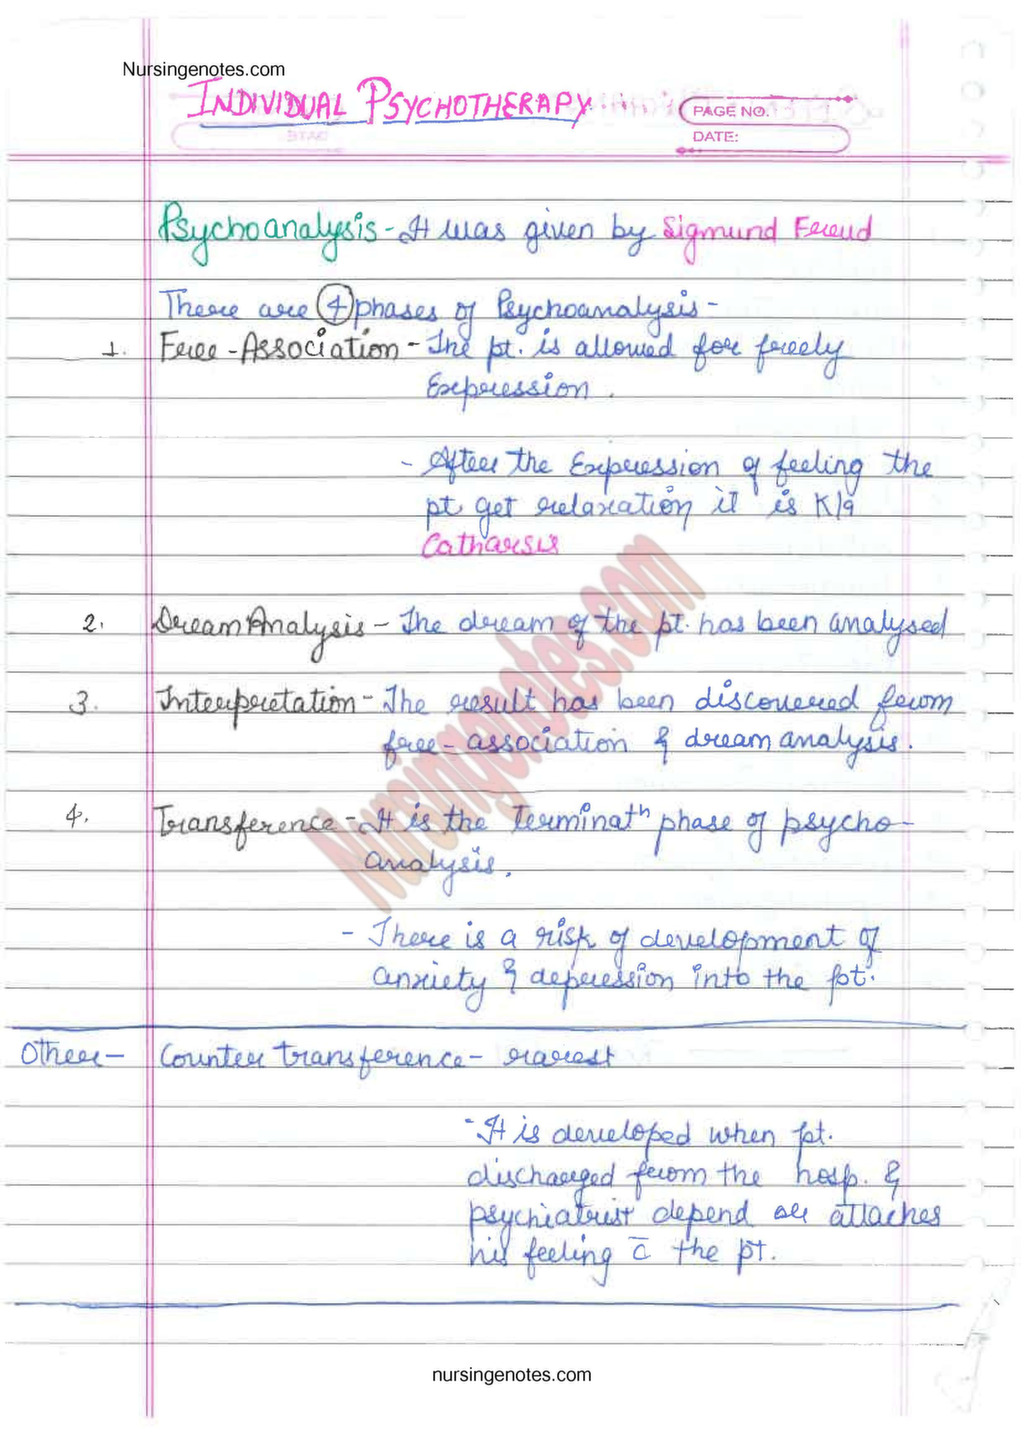 Nursingenotes.com
INDIVIDUAL PSYCHOTHERAPY
PAGE NO.
DATE:
Psychoanalysis - It was given by Sigmund Freud
There are 4 phases of Psychoanalysis -
1. Free - Association - The pt. is allowed for freely
Expression.
- After the Expression of feeling the
pt. get relaxation it is K/a
Catharsis
2. Dream Analysis - The dream of the pt. has been analysed
3. Interpretation - The result has been discovered from
free - association & dream analysis.
4. Transference - It is the Terminatn phase of psycho-
analysis.
- There is a risk of development of
anxiety & depression into the pt.
Other - Counter transference - rarest
- It is developed when pt.
discharged from the hosp. &
psychiatrist depend or attaches
his feeling c̄ the pt.
Nursingenotes.com
nursingenotes.com